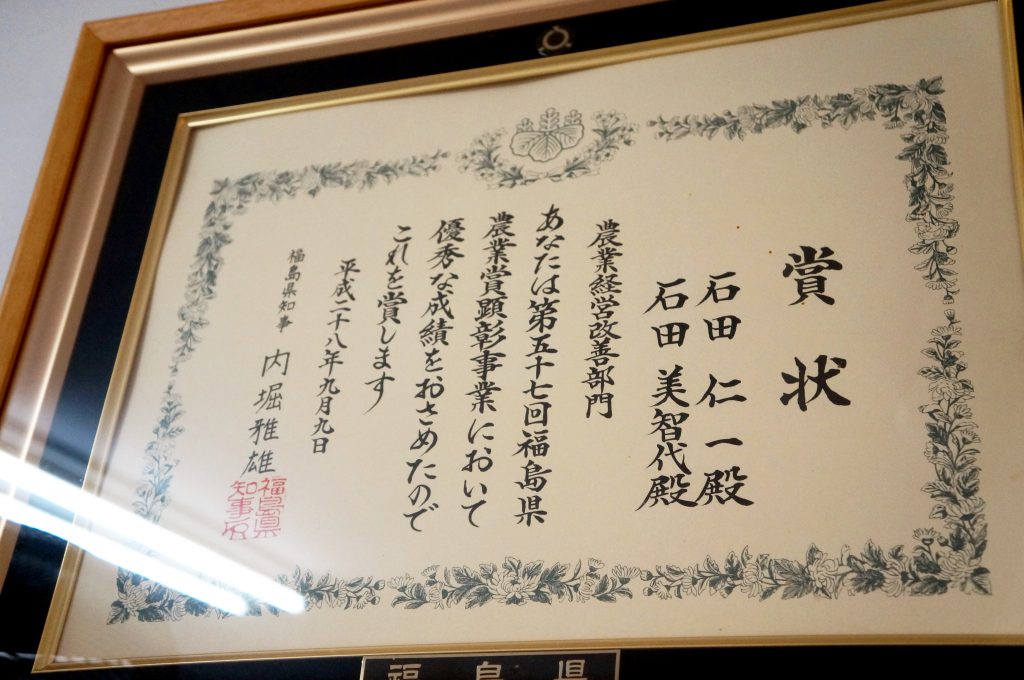 賞状
石田 仁一殿
石田 美智代殿
農業経営改善部門
あなたは第五十七回福島県
農業賞顕彰事業において
優秀な成績をおさめたので
これを賞します
平成二十八年九月九日
福島県知事 内堀雅雄
福島県
知事印
福島県